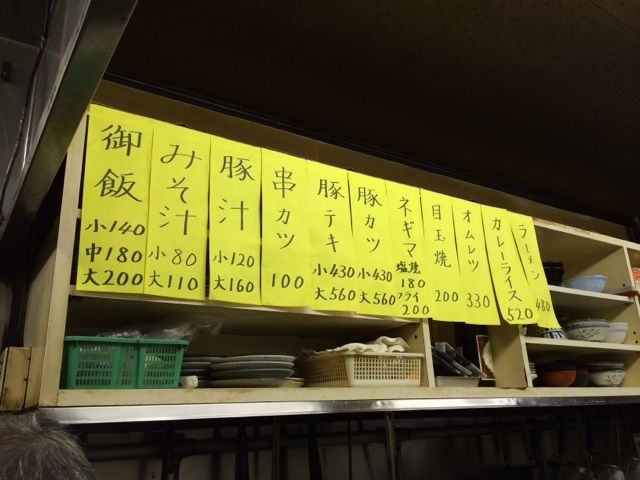 御飯
小140
中180
大200
みそ汁
小80
大110
豚汁
小120
大160
串カツ
100
豚テキ
小430
大560
豚カツ
小430
大560
ネギマ
塩焼
180
フライ
200
目玉焼
200
オムレツ
330
カレーライス
520
ラーメン
480